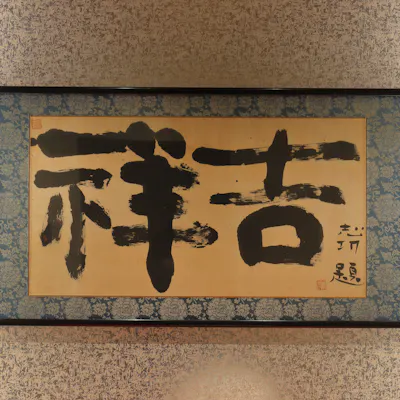 吉祥
志功
題